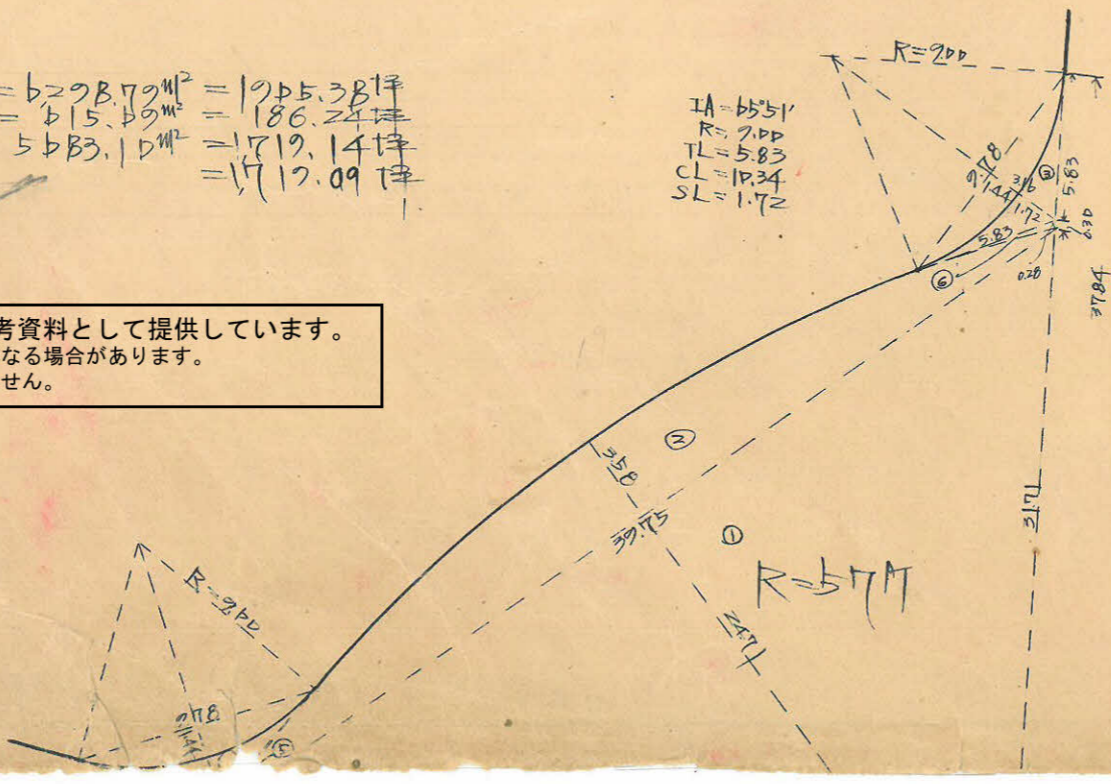 = 6298.79㎡ = 1905.38坪
= 615.69㎡ = 186.24坪
5683.10㎡ = 1719.14坪
= 1719.09坪
IA = 65°51′
R = 9.00
TL = 5.83
CL = 10.34
SL = 1.72
R=9.00
9.78
1.44
3.16
1.72
③
5.83
0.30
5.83
⑥
0.28
37.84
考資料として提供しています。
なる場合があります。
せん。
②
3.58
39.75
①
31.71
24.71
R=9.00
9.78
1.44
⑤